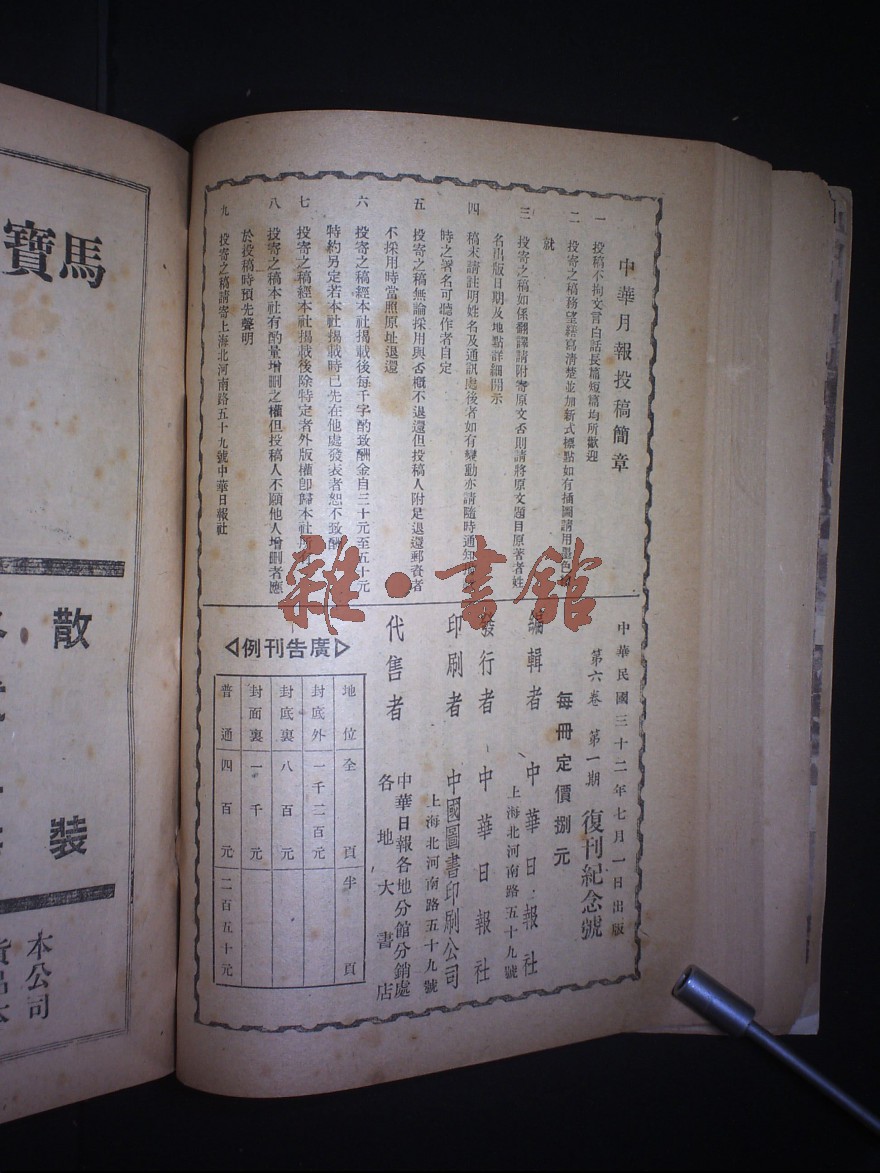 中華月報投稿簡章
一 投稿不拘文言白話長篇短篇均所歡迎
二 投寄之稿務望繕寫清楚並加新式標點如有插圖請用墨色
就
三 投寄之稿如係翻譯請附寄原文否則請將原文題目原著者姓
名出版日期及地點詳細開示
四 稿末請註明姓名及通訊處後者如有變動亦請隨時通知
時之署名可聽作者自定
五 投寄之稿無論採用與否概不退還但投稿人附足退還郵資者
不採用時當照原址退還
六 投寄之稿經本社揭載後每千字酌致酬金自三十元至五十元
特約另定若本社揭載時已先在他處發表者恕不致酬
七 投寄之稿經本社揭載後除特定者外版權卽歸本社
八 投寄之稿本社有酌量增刪之權但投稿人不願他人增刪者應
於投稿時預先聲明
九 投寄之稿請寄上海北河南路五十九號中華日報社
中華民國三十二年七月一日出版
第六卷 第一期 復刊紀念號
每冊定價捌元
編輯者 中華日報社
上海北河南路五十九號
發行者 中華日報社
印刷者 中國圖書印刷公司
上海北河南路五十九號
代售者 中華日報各地分館分銷處
各地大書店
廣告刊例
地位 全頁 半頁
封底外 一千二百元
封底裏 八百元
封面裏 一千元
普通 四百元 二百五十元
馬寶
散裝
本公司
雜·書館